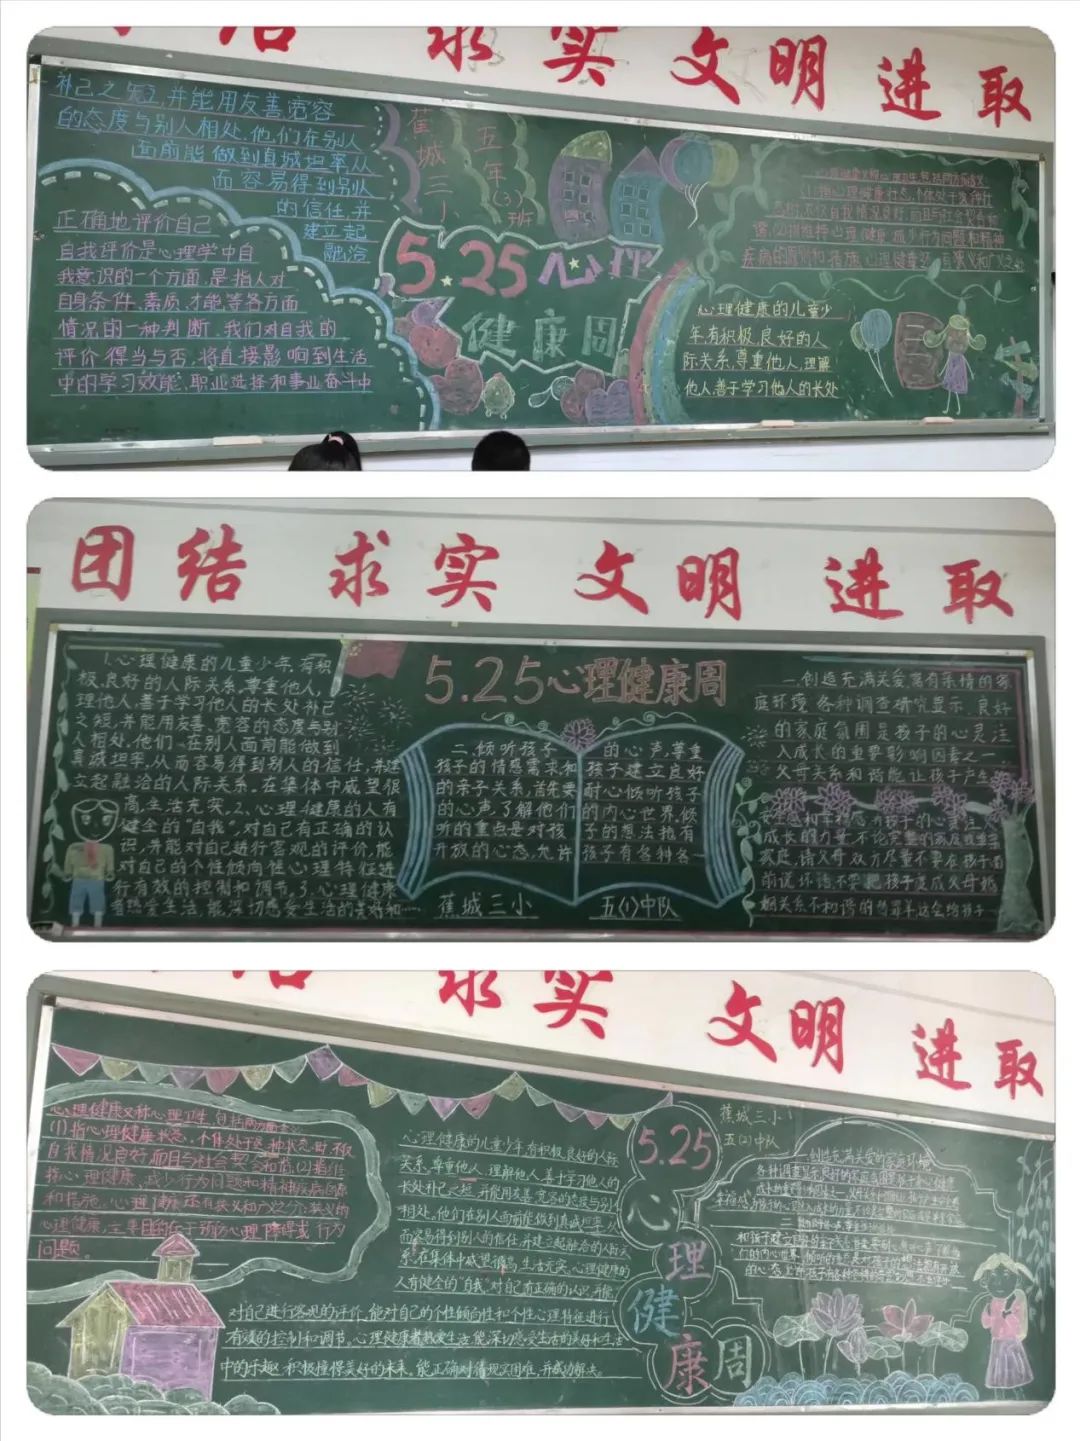 结 求实 文明 进取
补己之短,并能用友善宽容
的态度与别人相处,他们在别人
面前能做到真诚坦率从
而容易得到别人
的信任,并
建立起
融洽
正确地评价自己
自我评价是心理学中自
我意识的一个方面,是指人对
自身条件、素质、才能等各方面
情况的一种判断,我们对自我的
评价得当与否,将直接影响到生活
中的学习效能、职业选择和事业奋斗中
蕉城三小
五年(3)班
5.25心理
健康周
心理健康的儿童少
年,有积极,良好的人
际关系,尊重他人,理解
他人,善于学习他人的长处
团结 求实 文明 进取
5.25心理健康周
1.心理健康的儿童少年,有积
极,良好的人际关系,尊重他人,
理他人,善于学习他人的长处补己
之短,并能用友善、宽容的态度与别
人相处.他们在别人面前能做到
真诚坦率,从而容易得到别人的信任,并建
立起融洽的人际关系。在集体中威望很
高,生活充实。2、心理健康的人有
健全的“自我”,对自己有正确的认
识,并能对自己进行客观的评价,能
对自己的个性倾向性心理特征进
行有效的控制和调节。3、心理健康
者热爱生活,能深切感受生活的美好和……
二、倾听孩子
孩子的情感需求和
的亲子关系,首先要
的心声,了解他们
听的重点是对孩
开放的心态,允许
的心声,尊重
孩子建立良好
耐心倾听孩子
的内心世界,倾
子的想法抱有
孩子有各种各
蕉城三小 五(1)中队
一.创造充满关爱,富有亲情的家
庭环境,各种调查研究显示,良好
的家庭氛围是孩子的心灵注
入成长的重要影响因素之一,
父母关系和谐能让孩子产生
成长的力量,不论完整的家庭或单亲
家庭,请父母双方尽量不要在孩子面
前说坏话,不要把孩子变成父母婚
姻关系不和谐的替罪羊这会给孩子
结 求实 文明 进取
心理健康又称心理卫生,包括两方面
(1)指心理健康状态,个体处于这种状态时,不仅
自我情况良好,而且与社会契合和谐。(2)指维
持心理健康,减少行为问题和精神疾病的原
则和措施。心理健康还有狭义和广义之分:狭义的
心理健康,主要目的在于预防心理障碍或行为
问题。
心理健康的儿童少年,有积极,良好的人际
关系,尊重他人,理解他人,善于学习他人的
长处补己之短,并能用友善,宽容的态度与别人
相处,他们在别人面前能做到真诚坦率,从
而容易得到别人的信任,并建立起融洽的人际关
系,在集体中威望很高,生活充实,心理健康的
人有健全的“自我”,对自己有正确的认识,并能
对自己进行客观的评价,能对自己的个性倾向性和个性心理特征进行
有效的控制和调节。心理健康者热爱生活,能深切感受生活的美好和生活
中的乐趣,积极憧憬美好的未来,能正确对待现实困难,并成功解决。
5.25
心
理
健
康周
蕉城三小
五(2)中队